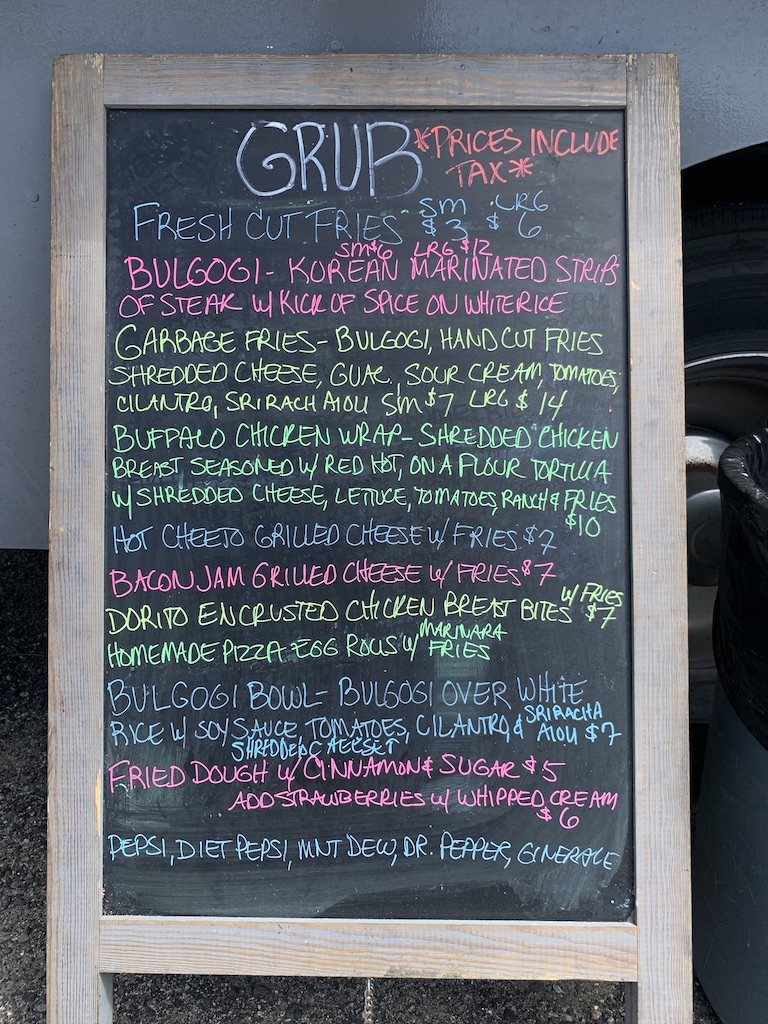 GRUB *PRICES INCLUDE
TAX*
SM LRG
FRESH CUT FRIES $3 $6
SM $6 LRG $12
BULGOGI - KOREAN MARINATED STRIPS
OF STEAK W/ KICK OF SPICE ON WHITE RICE
GARBAGE FRIES - BULGOGI, HAND CUT FRIES
SHREDDED CHEESE, GUAC., SOUR CREAM, TOMATOES,
CILANTRO, SRIRACH AIOLI SM $7 LRG $14
BUFFALO CHICKEN WRAP - SHREDDED CHICKEN
BREAST SEASONED W/ RED HOT, ON A FLOUR TORTILLA
W/ SHREDDED CHEESE, LETTUCE, TOMATOES, RANCH & FRIES
$10
HOT CHEETO GRILLED CHEESE W/ FRIES $7
BACON JAM GRILLED CHEESE W/ FRIES $7
W/ FRIES
DORITO ENCRUSTED CHICKEN BREAST BITES $7
MARINARA
HOMEMADE PIZZA EGG ROLLS W/ FRIES
BULGOGI BOWL - BULGOGI OVER WHITE
RICE W/ SOY SAUCE, TOMATOES, CILANTRO & SRIRACHA
AIOLI $7
SHREDDED CHEESE
FRIED DOUGH W/ CINNAMON & SUGAR $5
ADD STRAWBERRIES W/ WHIPPED CREAM
$6
PEPSI, DIET PEPSI, MNT DEW, DR. PEPPER, GINERALE